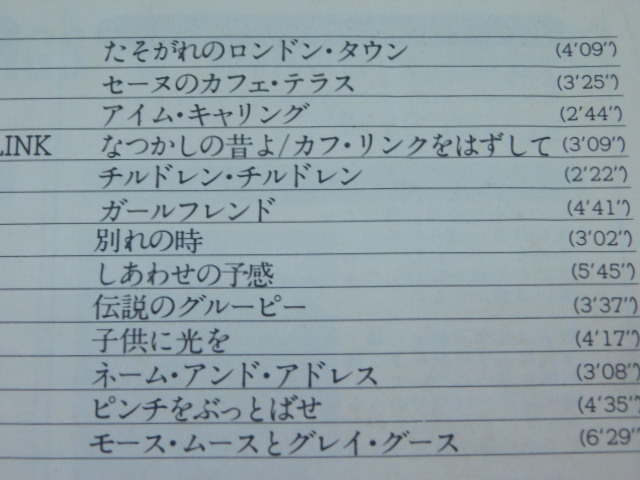 たそがれのロンドン・タウン (4'09")
セーヌのカフェ・テラス (3'25")
アイム・キャリング (2'44")
LINK なつかしの昔よ/カフ・リンクをはずして (3'09")
チルドレン・チルドレン (2'22")
ガールフレンド (4'41")
別れの時 (3'02")
しあわせの予感 (5'45")
伝説のグルーピー (3'37")
子供に光を (4'17")
ネーム・アンド・アドレス (3'08")
ピンチをぶっとばせ (4'35")
モース・ムースとグレイ・グース (6'29"